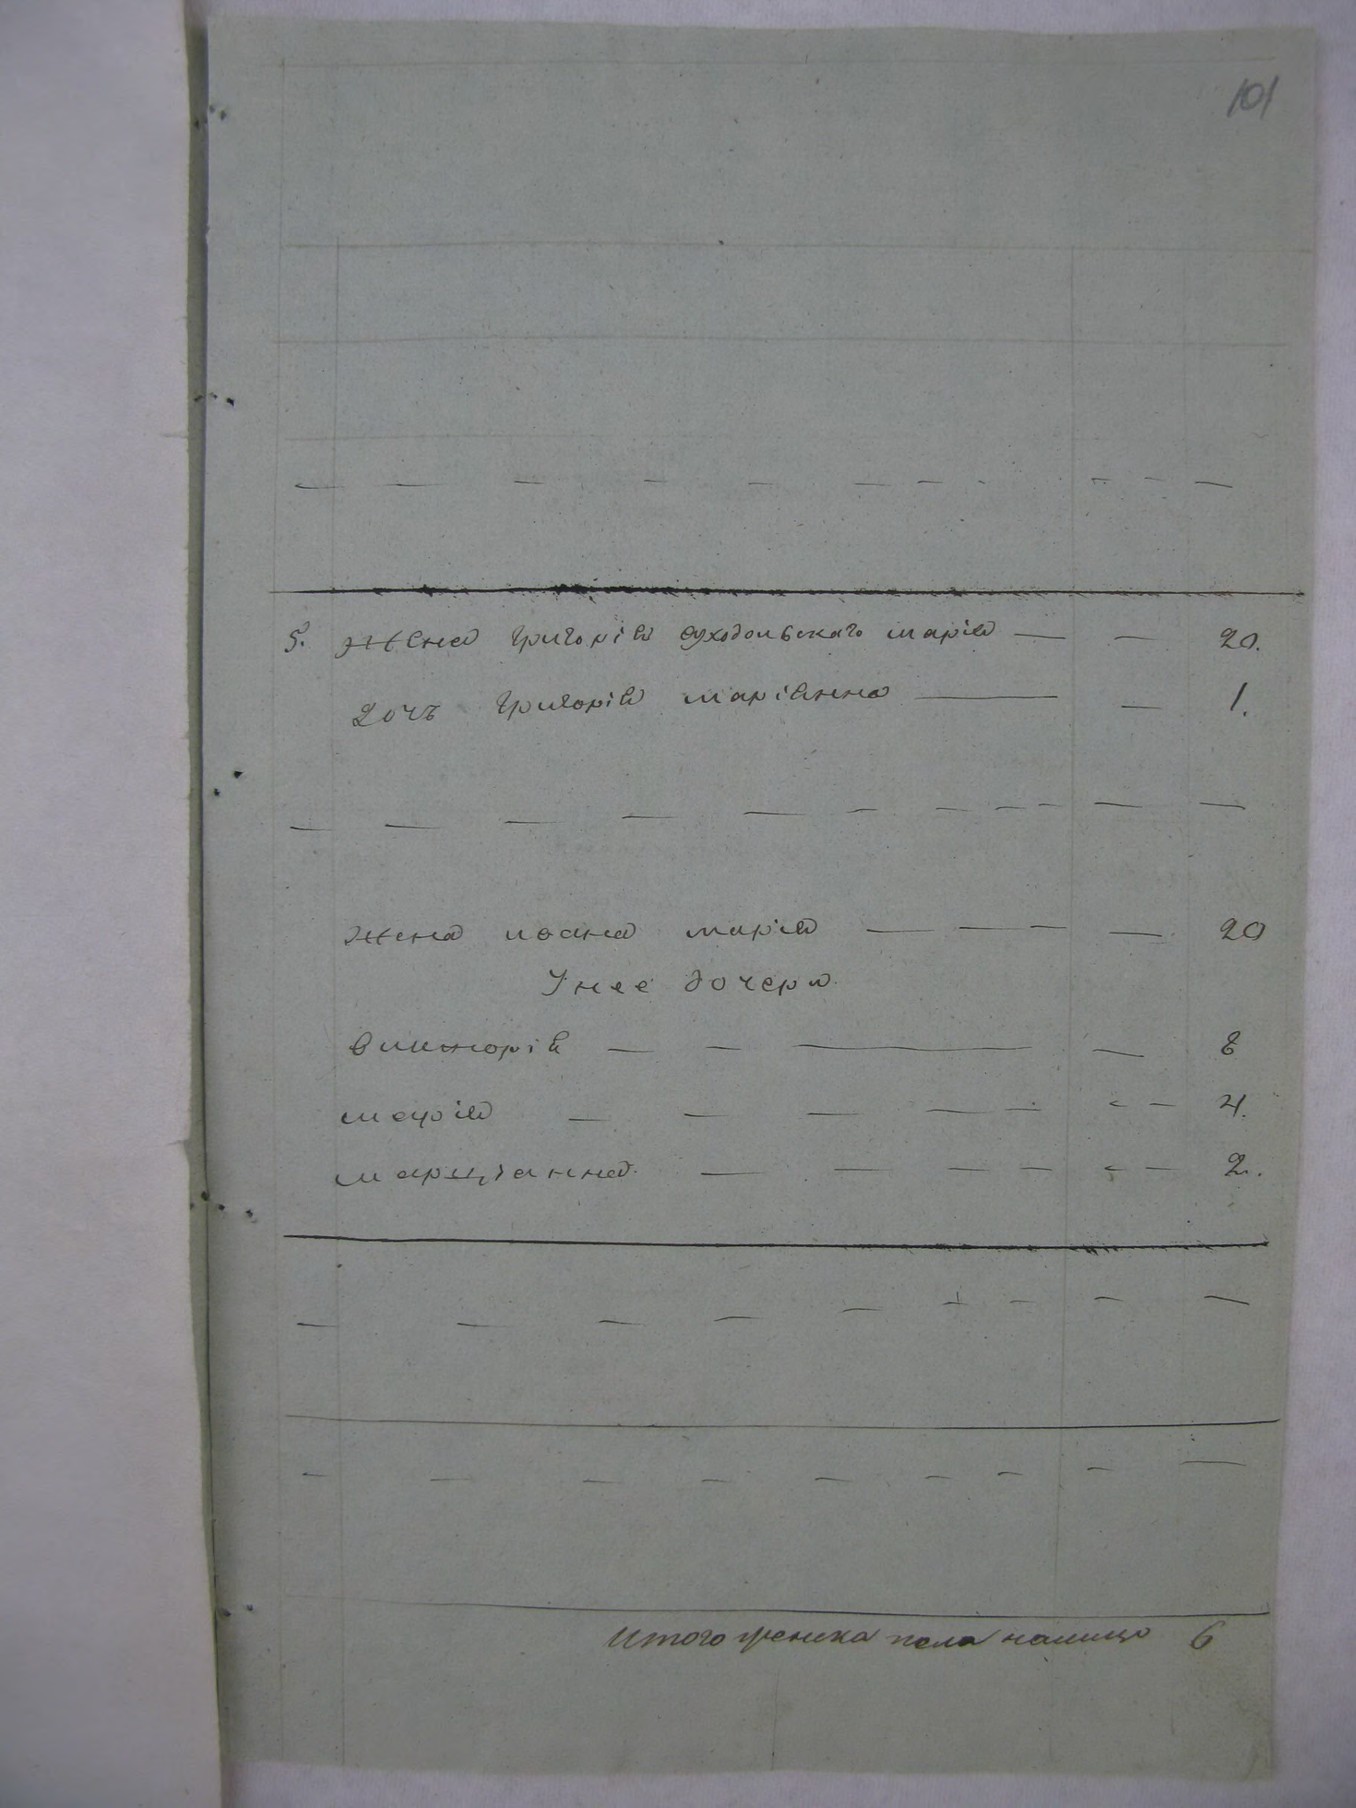 101
5. Жена Григорія Суходольскаго Марія — — 20.
Дочь Григорія Маріянна — — 1.
Жена Ивана Марія — — — — 20
У нее дочери
Викторія — — — — 8
Марія — — — — — — — 4.
Марціанна — — — — — — 2.
Итого женска пола налицо 6